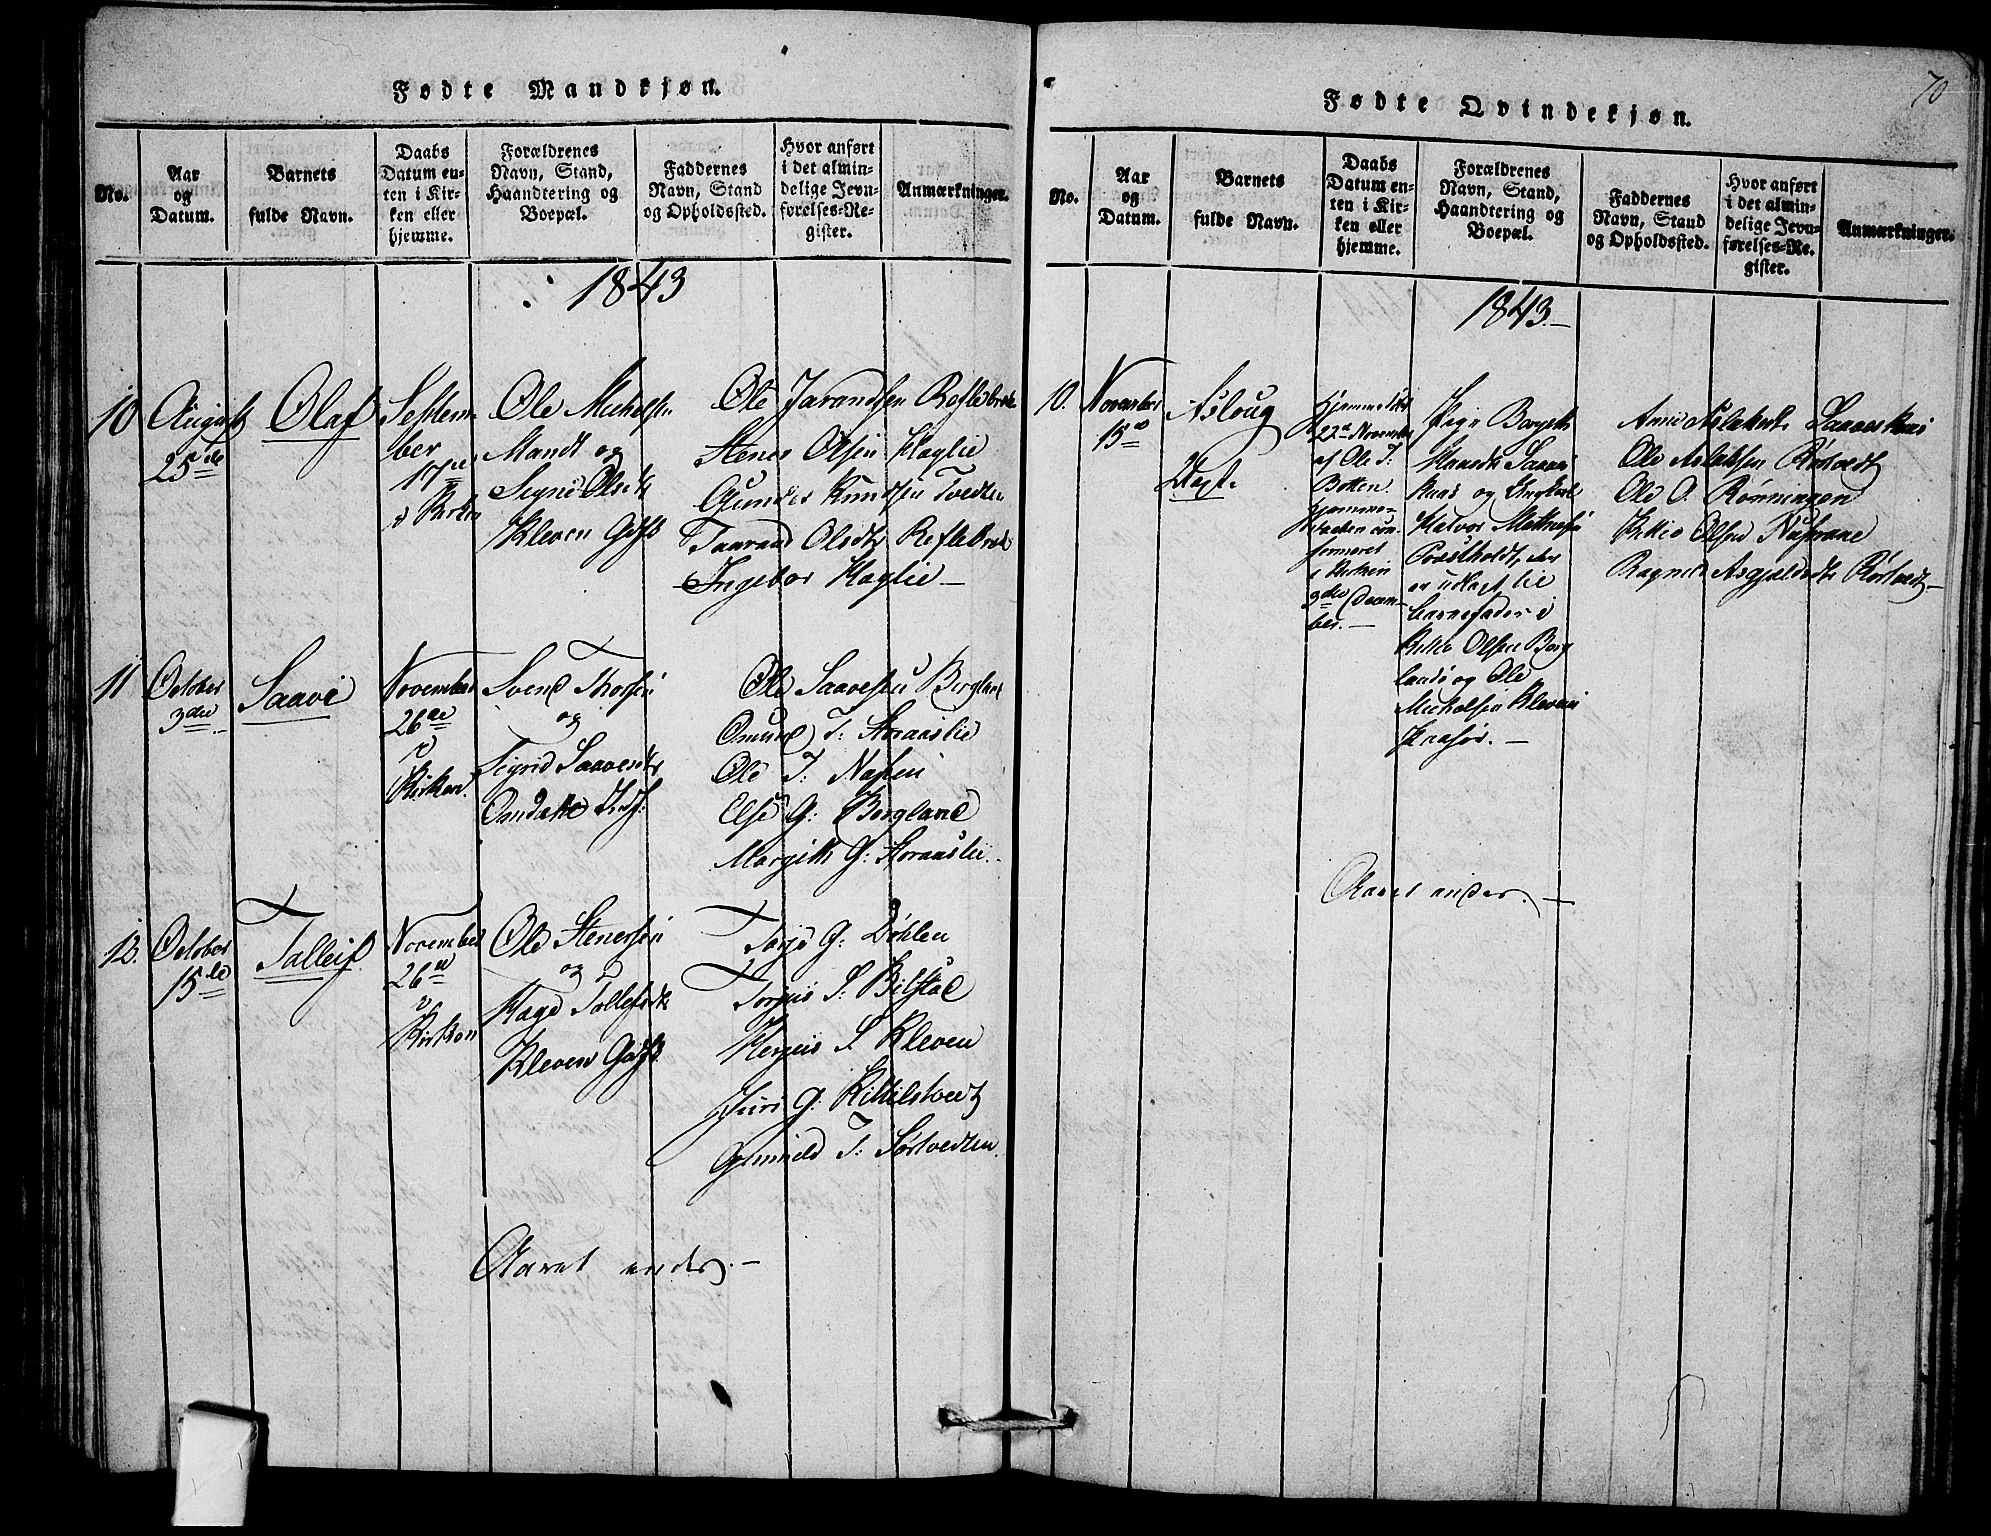 Fødte Mandkjøn.
No.
Aar
og
Datum.
Barnets
fulde Navn.
Daabs
Datum en-
ten i Kir-
ken eller
hjemme.
Forældrenes
Navn, Stand,
Haandtering og
Boepæl.
Faddernes
Navn, Stand
og Opholdssted.
Hvor anført
i det almin-
delige Jevn-
førelses-Re-
gister.
Anmærkninger.
1843
10
August
25de
Olaf
Septem-
ber
17de
i Kirken
Ole Michelsen
Mandt og
Signe Olsdtr
Kleven Gift
Ole Jarandsen Roflebrek
Stener Olsen Haglie
Gunder Knudsen Tvedten
Taarand Olsdtr
Ingebor Haglie —
11
October
3die
Saave
November
26de
i
Kirken.
Svend Thorsen
og
Sigrid Saavesdtr
Omdal
Ole Saavesen Borgland
Omund T: Aaraaslie
Ole T:
Else G: Borgland
Margith G: Aaraaslie.
12.
October
15de
Talleif
November
26de
i
Kirken
Ole Stenersen
og
Aage Tollefsdtr
Kleven Gift
Torje G: Bøhlen
Torgus S: Bilstad
Herjus S Kleven
Juri G: Kittilstvedt
Gunnild T: Sørtvedten.
Aaret endes. —
70
Fødte Qvindekjøn.
No.
Aar
og
Datum.
Barnets
fulde Navn.
Daabs
Datum en-
ten i Kir-
ken eller
hjemme.
Forældrenes
Navn, Stand,
Haandtering og
Boepæl.
Faddernes
Navn, Stand
og Opholdssted.
Hvor anført
i det almin-
delige Jevn-
førelses-Re-
gister.
Anmærkninger.
1843.—
10.
November
15de
Asloug
Uægte
Hjemmedøbt
22de November
af Ole T:
Botten.
Hjemme-
daaben con-
firmeret
i Kirken
3die Decem-
ber. —
Pige Borgith
Saave
og Ungkarl
Halvor
er udlagt til
barnefader i
Ole Olsen Borg
lands og Ole
Michelsen Kleven
—
Anne Aslaksdtr
Ole Aslaksen Rørtvedt
Ole O. Rønningen
Olsen
Asgjældsdtr Rørtvedt —
Aaret endes. —